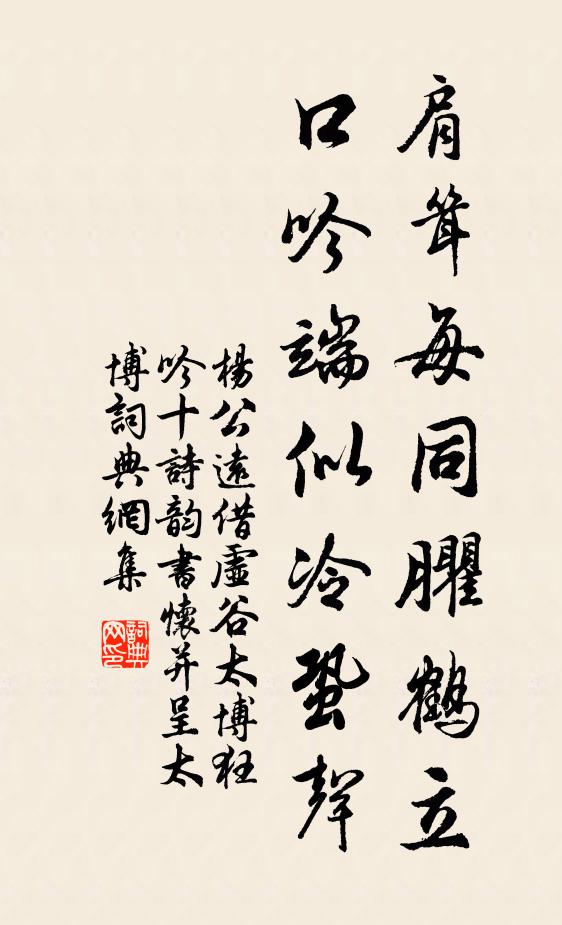 肩聳每同臞鶴立
口吟端似冷蛩聲
楊公遠借虛谷太博狂
吟十詩韵書懷并呈太
博詞典網集
詞典
网印